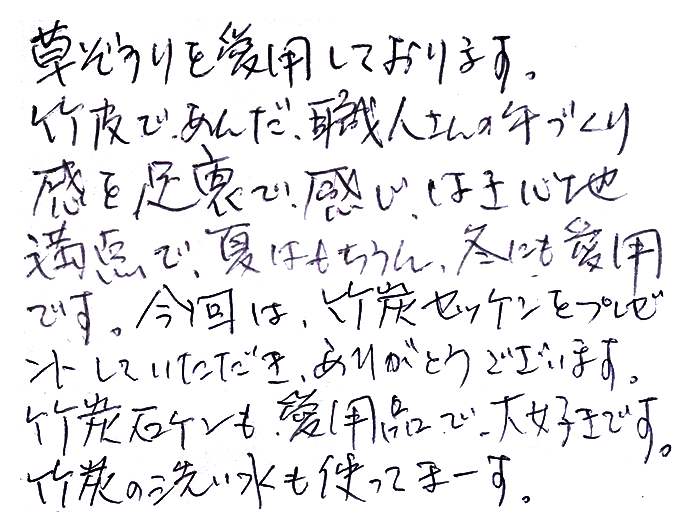 草ぞうりを愛用しております。
竹皮で、あんだ、職人さんの手づくり
感を足裏で、感じ、はき心地
満点で、夏はもちろん、冬にも愛用
です。今回は、竹炭セッケンをプレゼ
ントしていただき、ありがとうございます。
竹炭石ケンも、愛用品で、大好きです。
竹炭の洗い水も使ってまーす。